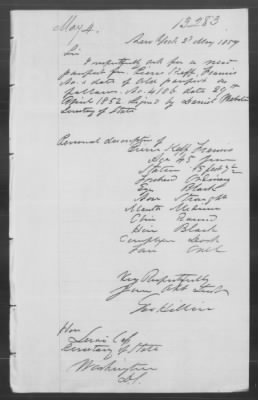 May 4.
13283
New York 3d May 1859
Sir
I respectfully ask for a new
passport for
No. & date of old passport as
follows. No. 4106 date 29
April 1852 Signed by Daniel Webster
Secretary of State
Personal description of
Francis
Age 45 Years
Stature 5 feet
Forehead Ordinary
Eyes Black
Nose Straight
Mouth Medium
Chin Round
Hair Black
Complexion Dark
Face Oval
Very Respectfully
Your Obt Servt
Hon
Lewis Cass
Secretary of State
Washington